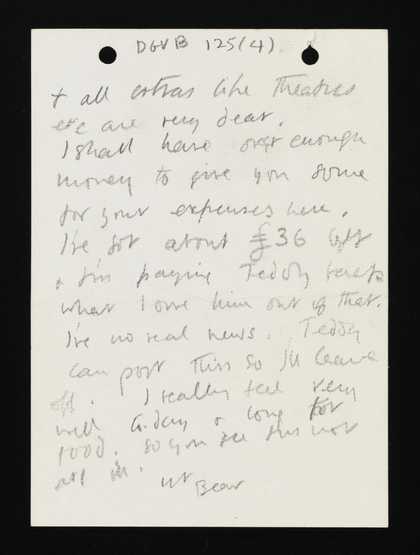 DGVB 125(4)
+ all extras like Theatres
etc are very dear.
I shall have over enough
money to give you some
for your expenses here.
I've got about £36 left
+ I'm paying Teddy back
what I owe him out of that.
I've no real news. Teddy
can post this so I'll leave
off. I really feel very
well to-day + long for
food. So you see I'm not
all in.
Bear